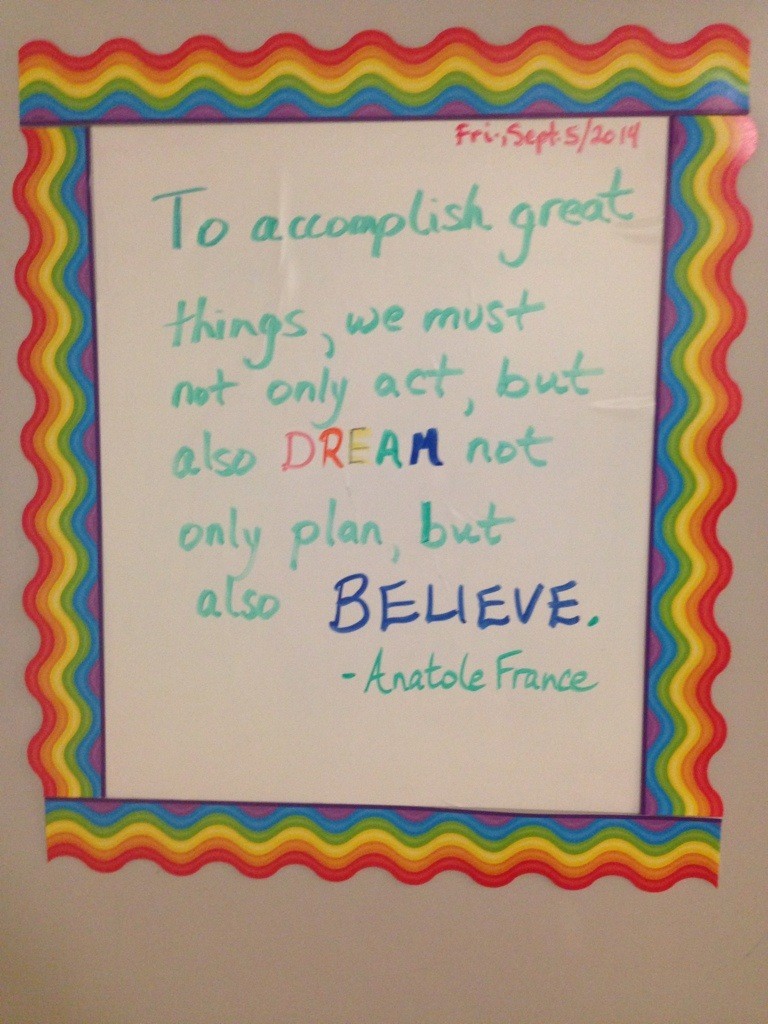 Fri., Sept. 5/2014
To accomplish great
things, we must
not only act, but
also DREAM not
only plan, but
also BELIEVE.
- Anatole France